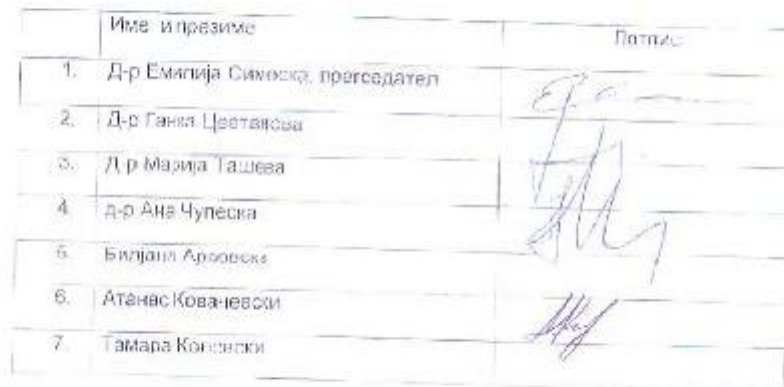 Име и презиме
Потпис
1. Д-р Емилија Симоска, претседател
2. Д-р Ганка Цветанова
3. Д-р Марија Ташева
4 д-р Ана Чупеска
5. Билјана
6. Атанас Ковачевски
7. Тамара